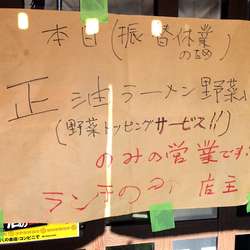 本日(振替休業
のため
正油ラーメン野菜
(野菜トッピングサービス!!)
のみの営業です
ランチのみ 店主